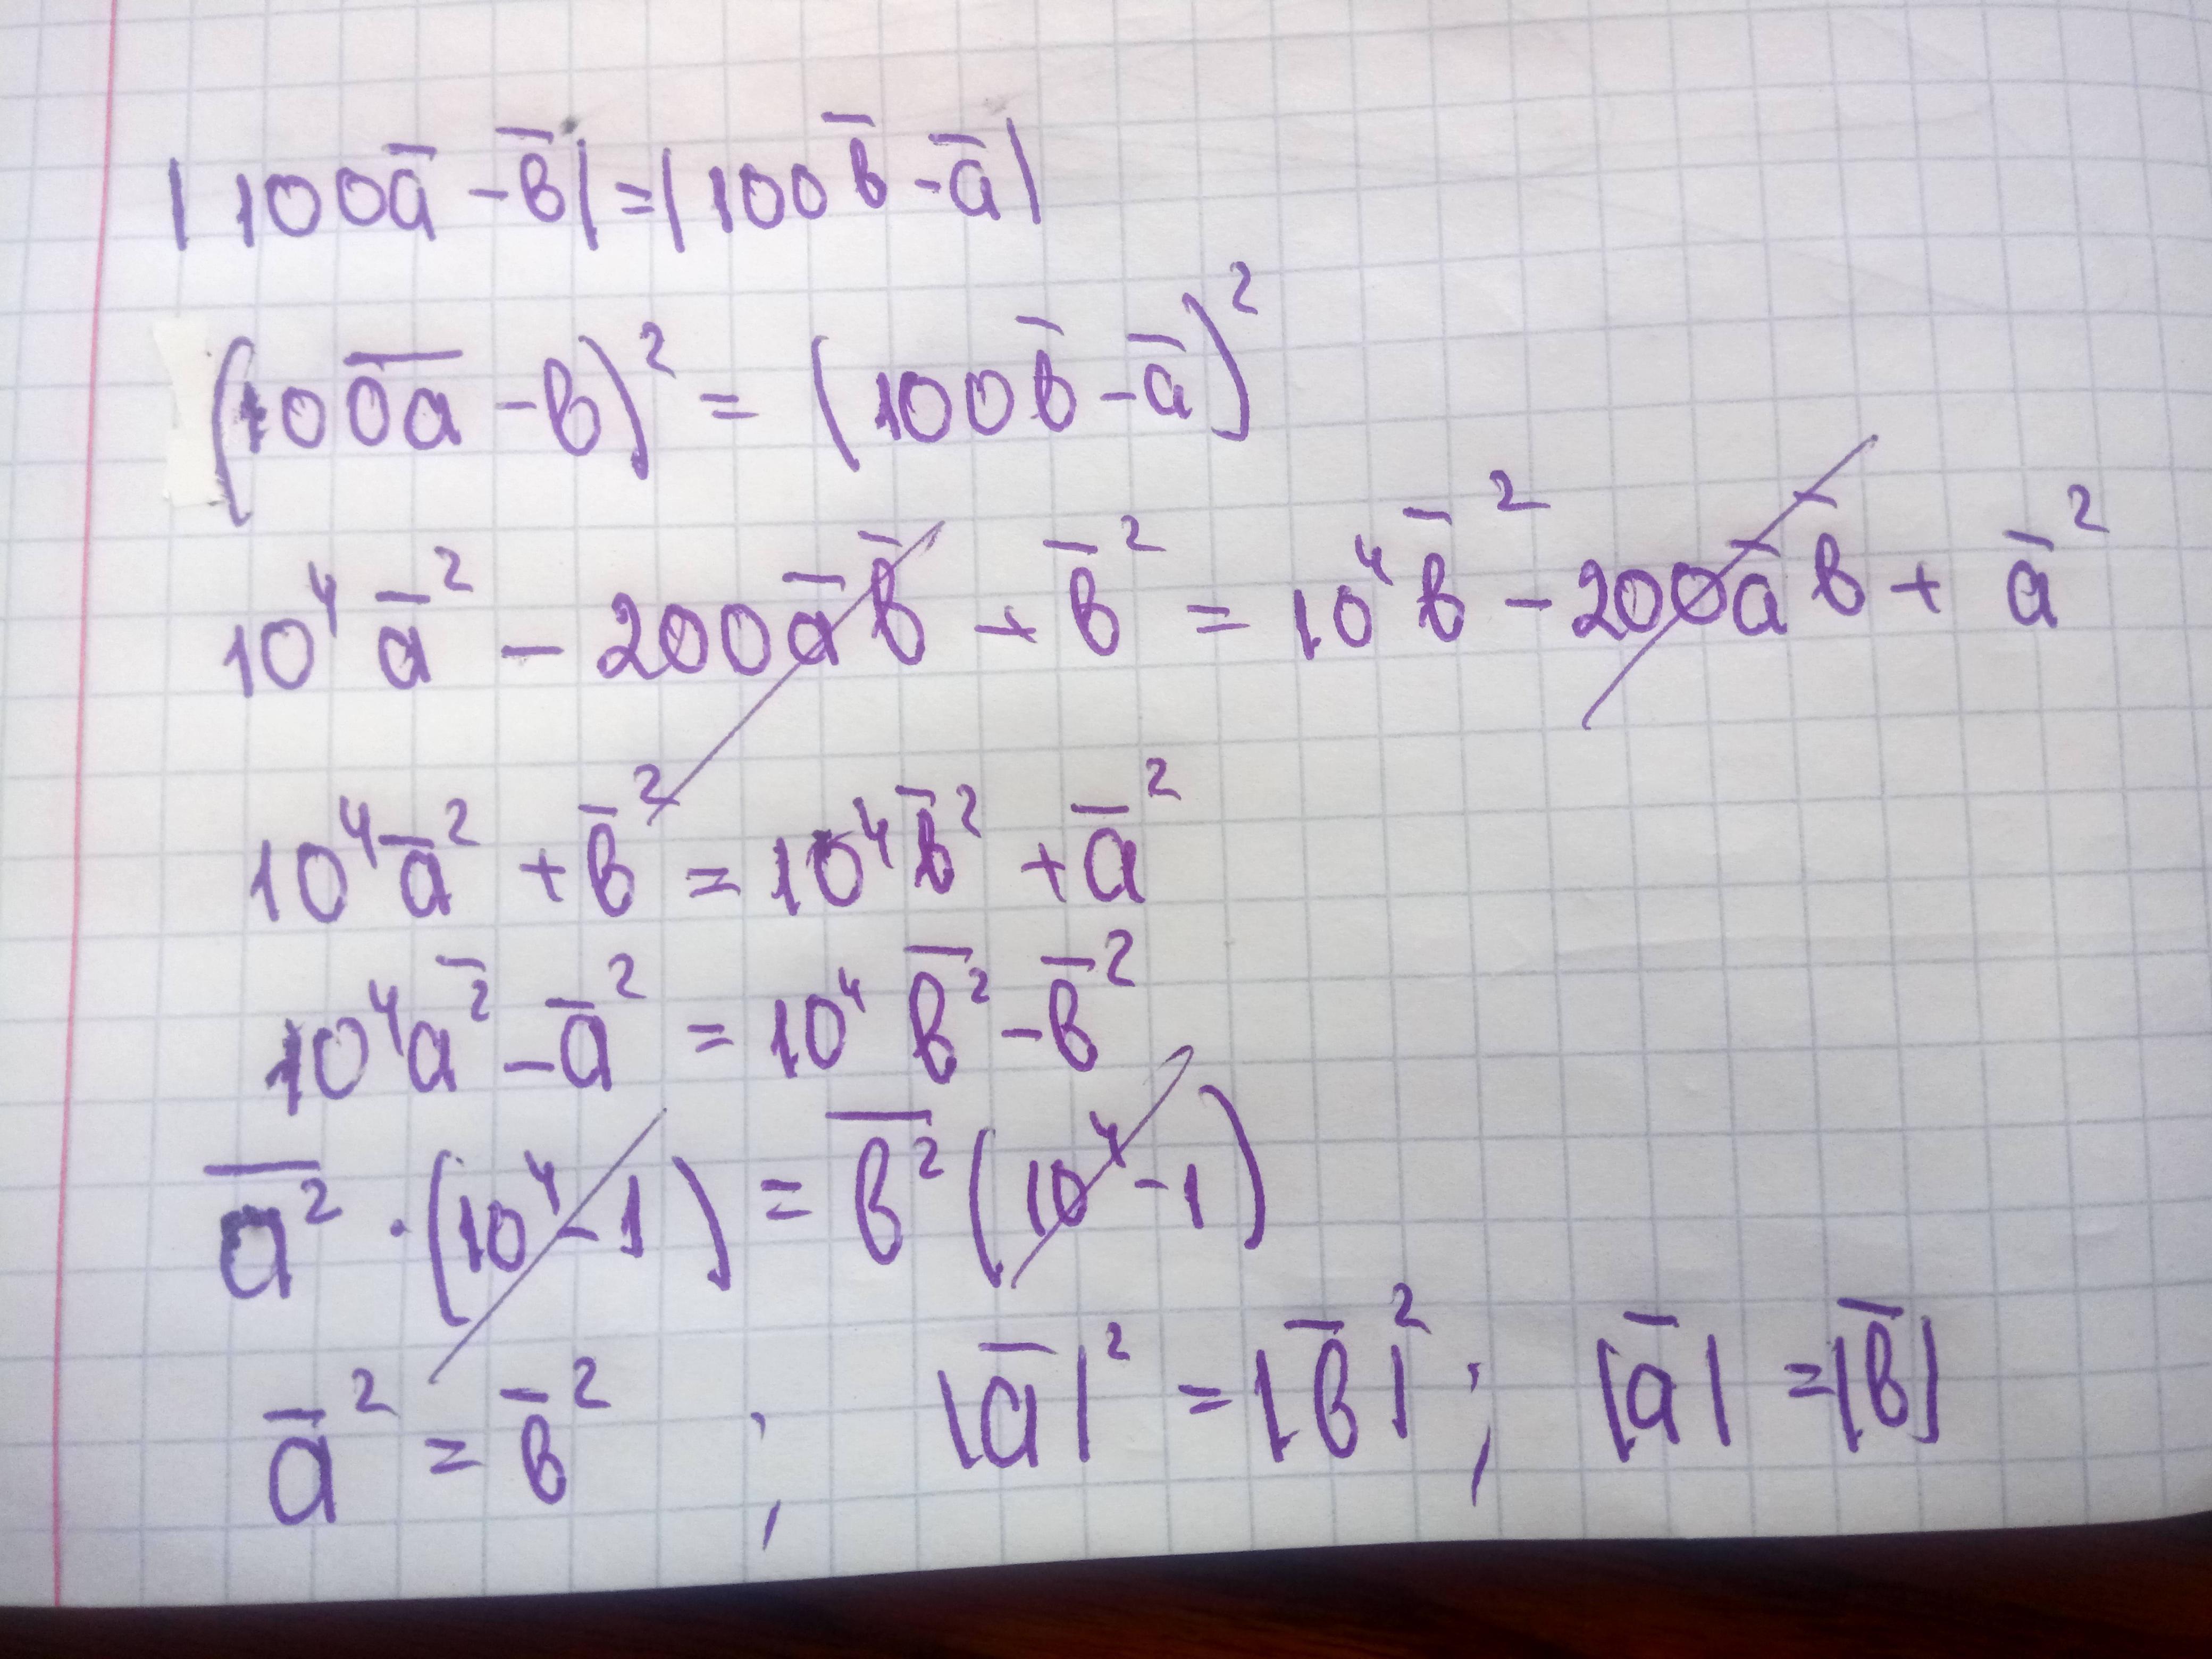 |100a̅ - в̅| = |100в̅ - a̅|
(100̅a̅ - в)² = (100в̅ - a̅)²
10⁴ a̅² - 200a̅в̅ + в̅² = 10⁴ в̅² - 200a̅в̅ + a̅²
10⁴a̅² + в̅² = 10⁴в̅² + a̅²
10⁴a̅² - a̅² = 10⁴ в̅² - в̅²
a̅² · (10⁴ - 1) = в̅² (10⁴ - 1)
a̅² = в̅² ; |a̅|² = |в̅|² ; |a̅| = |в̅|